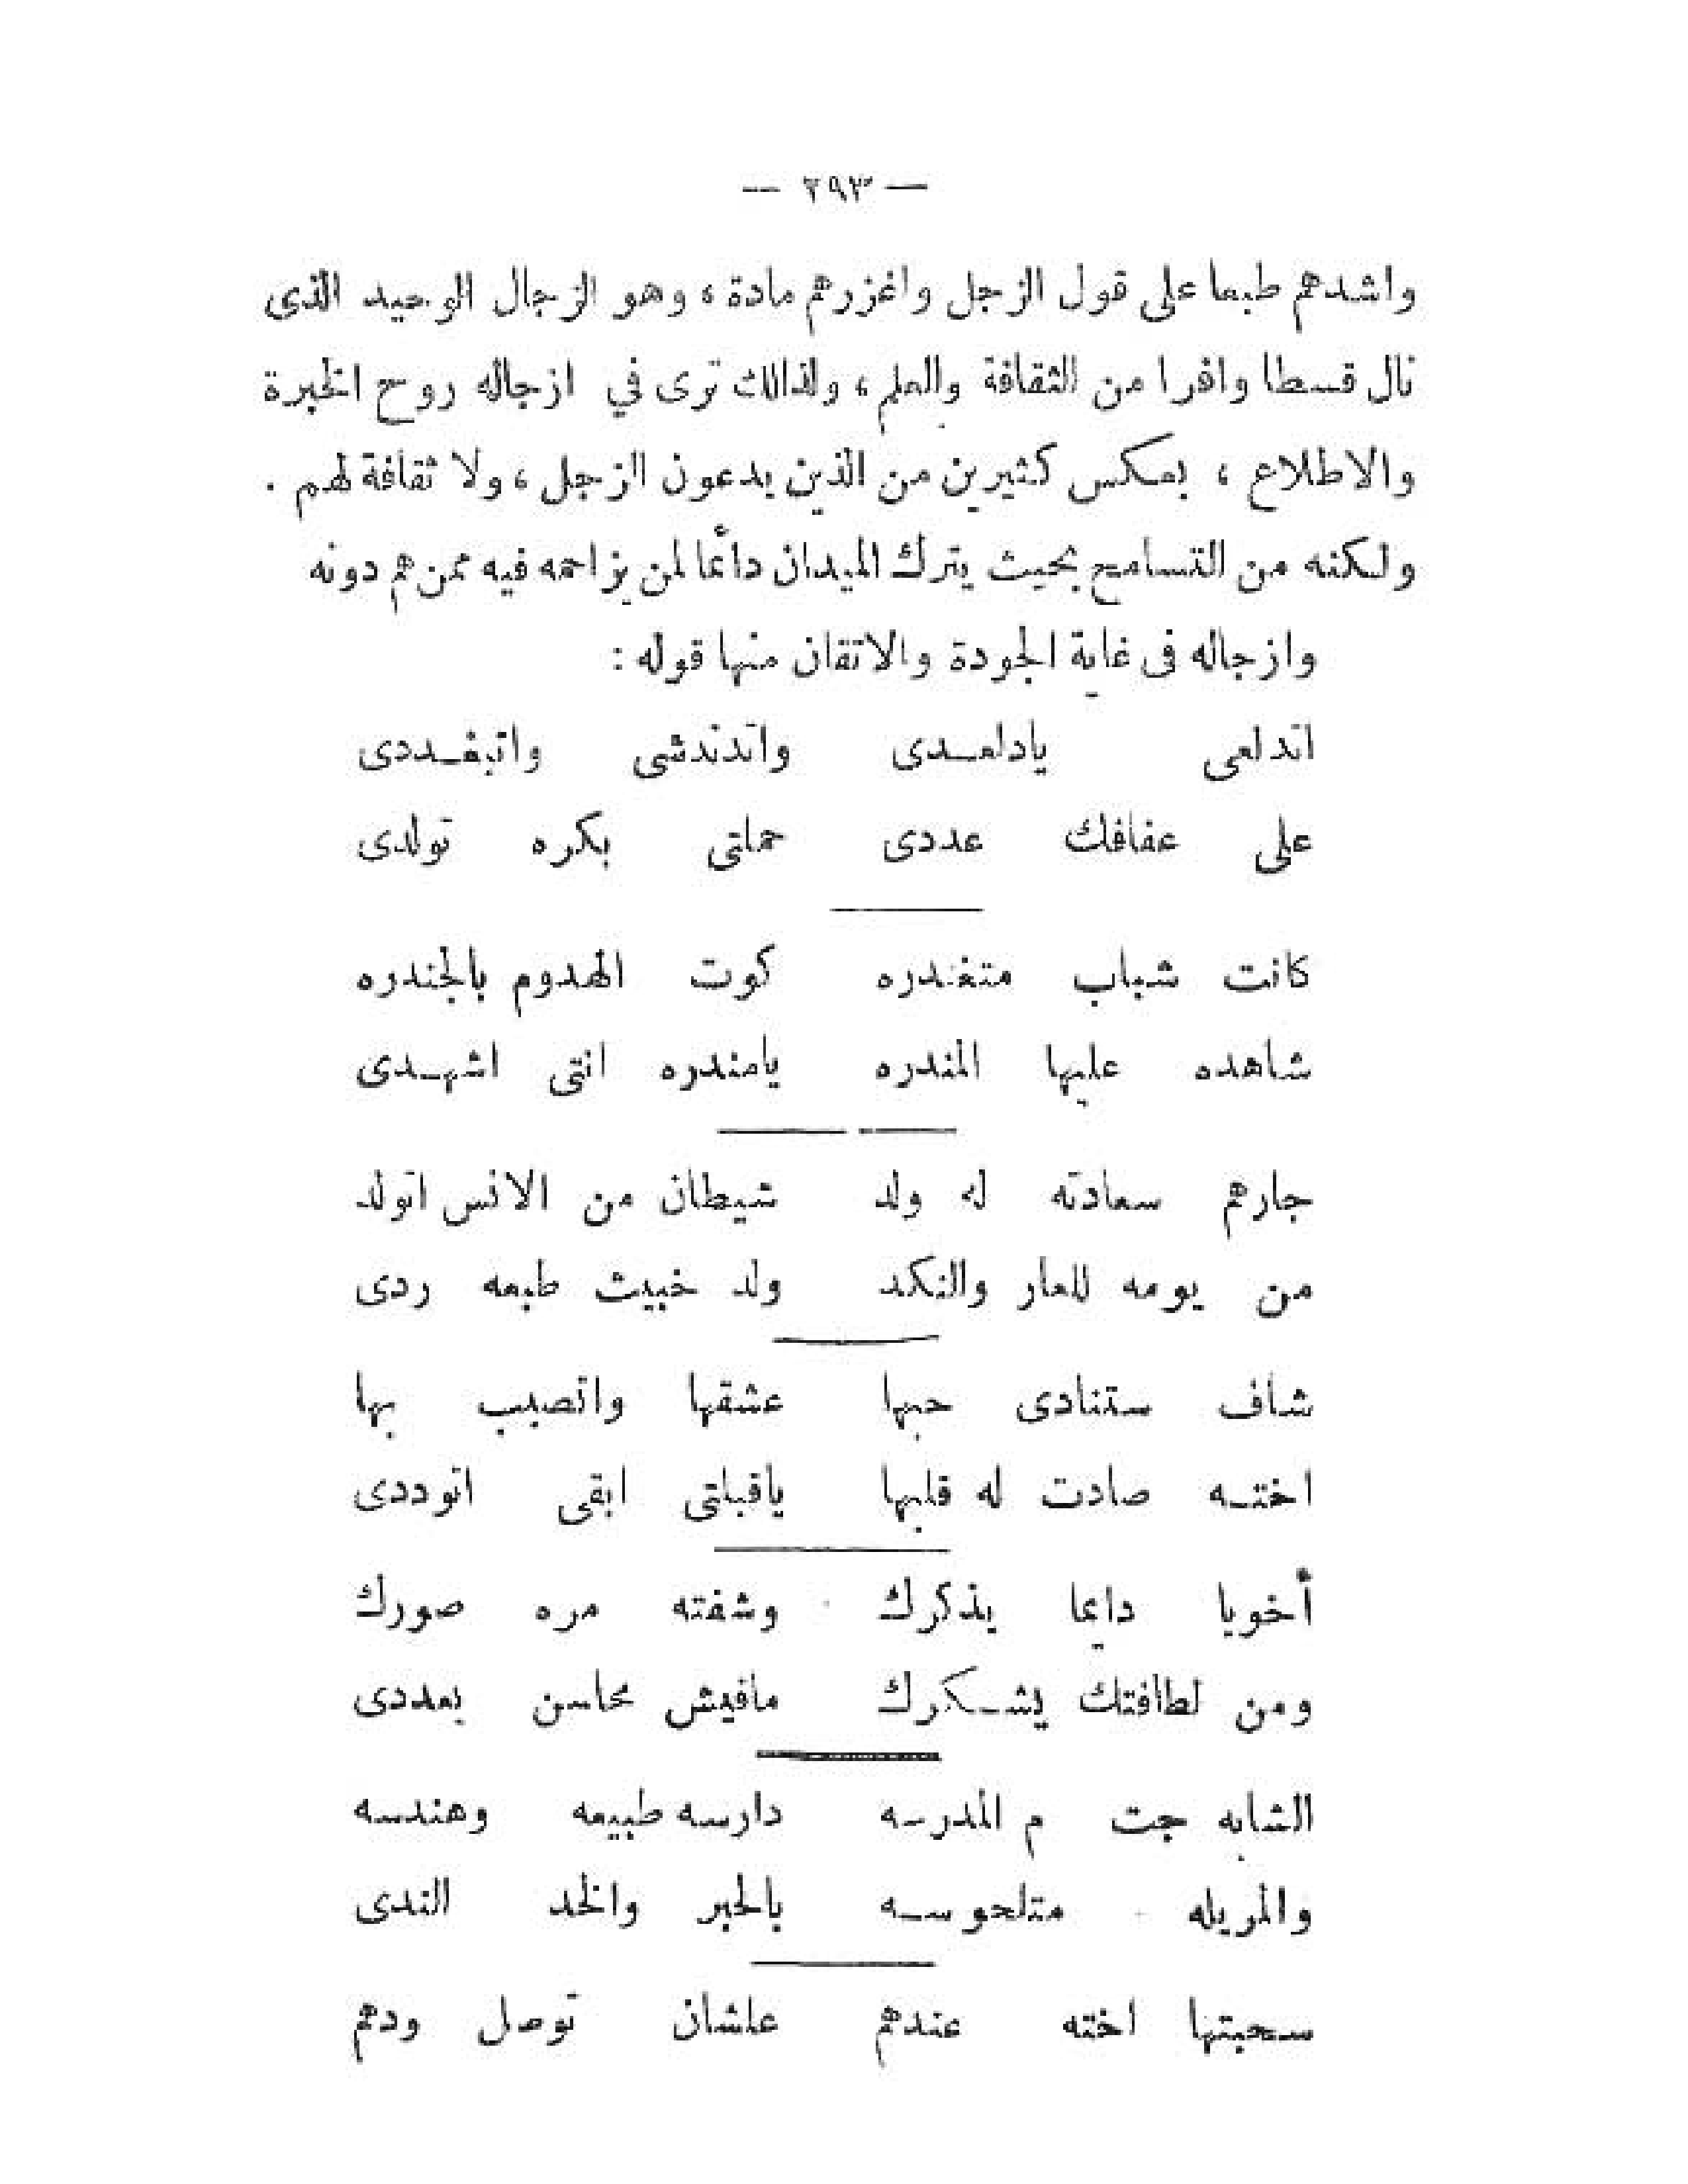 — ٢٩٣ —
واشدهم طبعا على قول الزجل واغزرهم مادة ، وهو الزجال الوحيد الذى
نال قسطا وافرا من الثقافة والعلم ، ولذالك ترى في ازجاله روح الخبرة
والاطلاع ، بعكس كثيرين من الذين يدعون الزجل ، ولا ثقافة لهم .
ولكنه من التسامح بحيث يترك الميدان دائما لمن يزاحمه فيه ممن هم دونه
وازجاله فى غاية الجودة والاتقان منها قوله :
اتدلعى يادلعدى واتدندشى واتبغددى
على عفافك عددى حماتى بكره تولدى
كانت شباب متغندره كوت الهدوم بالجندره
شاهده عليها المندره يامندره انتى اشهدى
جارهم سعادته له ولد شيطان من الانس اتولد
من يومه للعار والنكد ولد خبيث طبعه ردى
شاف ستنادى حبها عشقها واتصيب بها
اخته صادت له قلبها ياقباتى ابقى اتوددى
أخويا دايما يذكرك وشفته مره صورك
ومن لطافتك يشكرك مافيش محاسن بعددى
الشابه جت م المدرسه دارسه طبيعه وهندسه
والمريله متلحوسه بالحبر والخد الندى
سحبتها اخته عندهم علشان توصل ودهم